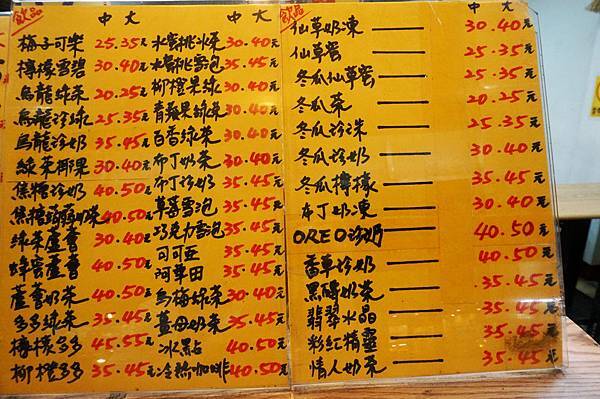 飲品 中 大 中 大
梅子可樂 25.35元 水蜜桃冰茶 30.40元
檸檬雪碧 25.35元 水蜜桃雪泡 35.45元
烏龍綠茶 20.25元 柳橙果綠 30.40元
烏龍珍綠 25.35元 青蘋果綠茶 30.40元
烏龍珍奶 35.45元 百香綠茶 30.40元
綠茶椰果 30.40元 布丁奶茶 30.40元
焦糖珍奶 40.50元 布丁珍奶 35.45元
焦糖蒟蒻奶茶 40.50元 草莓雪泡 35.45元
綠茶蘆薈 30.40元 巧克力雪泡 35.45元
蜂蜜蘆薈 40.50元 可可亞 35.45元
蘆薈奶茶 40.50元 阿華田 35.45元
多多綠茶 35.45元 烏梅綠茶 30.40元
檸檬多多 45.55元 薑母奶茶 35.45元
柳橙多多 35.45元 冰點 40.50元
冷熱咖啡 40.50元
飲品 中 大
仙草奶凍 30.40元
仙草蜜 25.35元
冬瓜仙草蜜 25.35元
冬瓜茶 20.25元
冬瓜珍珠 25.35元
冬瓜珍奶 30.40元
冬瓜檸檬 35.45元
布丁奶凍 30.40元
OREO珍奶 40.50元
香草珍奶 40.50元
黑磚奶茶 35.45元
翡翠水晶 35.45元
粉紅精靈 35.45元
情人奶茶 35.45元